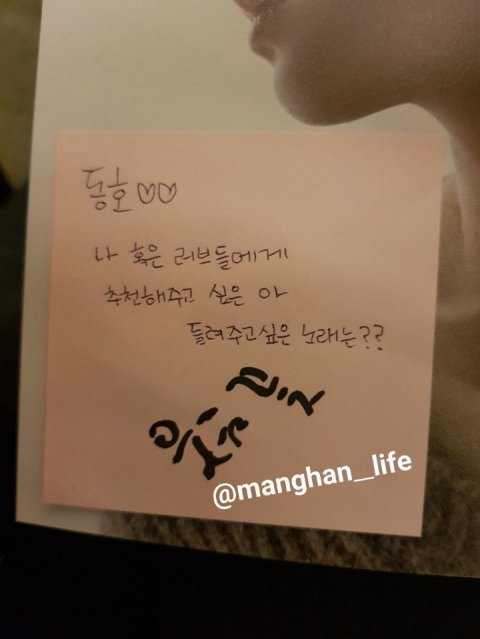 동호♡♡
나 혹은 러브들에게
추천해주고 싶은 아
들려주고싶은 노래는??
@manghan__life